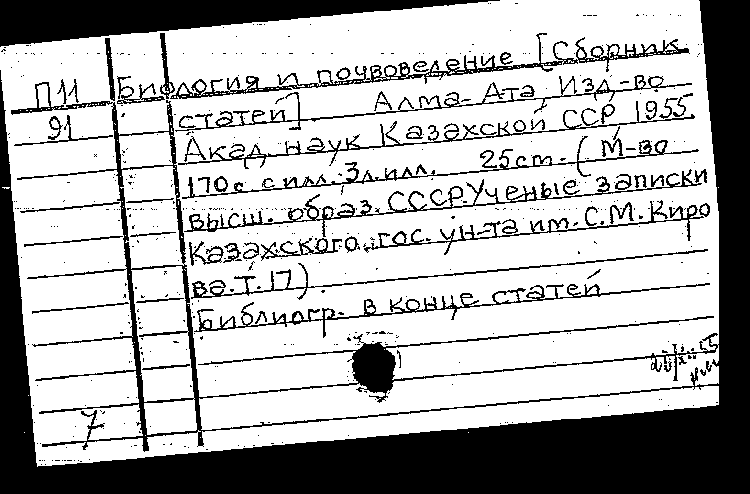 П11 Биология и почвоведение [Сборник
91 статей]. Алма-Ата Изд-во
Акад. наук Казахской ССР 1955.
170с. с илл.; 3л.илл. 25cm. (М-во
высш. образ. СССР.Ученые записки
Казахского гос. ун-та им. С.М. Киро
ва.Т.17).
Библиогр. в конце статей
7